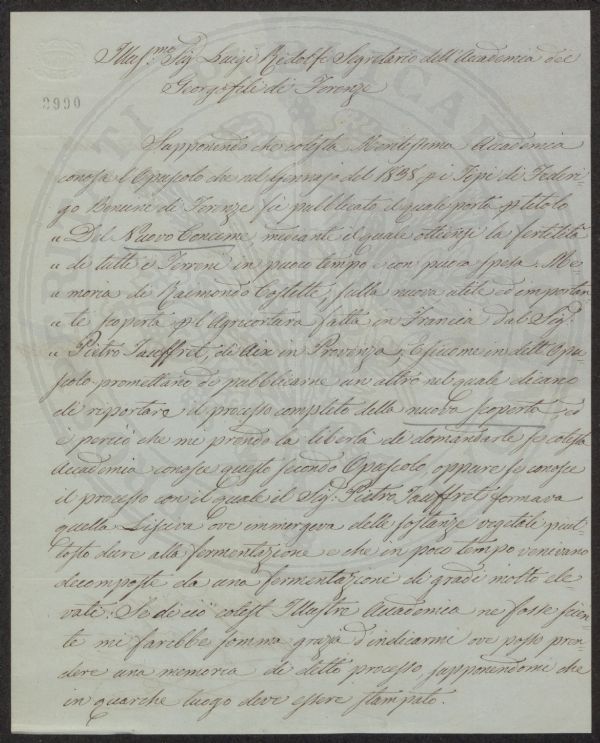 Illus.mo Sig. Luigi Ridolfi Segretario dell'Accademia dei
Georgofili di Firenze
2990
Supponendo che cotesta Accademia
conosca l'Opuscolo che nel Gennajo del 1838 p i Tipi di Federi-
go Bencini di Firenze fù pubblicato il quale porta p titolo
" Del Nuovo Concime mediante il quale ottiensi la fertilità
" di tutti i Terreni in puoco tempo e con puoca spesa. Me
" moria di Raimondo Costette, sulla nuova utile ed importan
" te scoperta p l'Agricortura fatta in Francia dal Sig.
" Pietro Jauffret, di Aix in Provenza, E siccome in dett'Opu-
scolo promettano di pubblicarne un altro nel quale dicano
di riportare il processo completo della nuova scoperta ed
è perciò che mi prendo la libertà di domandarle, se cotesta
Accademia conosce questo secondo Opuscolo, oppure se conosce
il processo con il quale il Sig. Pietro Jauffret formava
quella Lisciva ove immergeva delle sostanze vegetale piut-
tosto dure alla fermentazione e che in poco tempo venivano
decomposte da una fermentazioni di gradi molto ele-
vati: Se di ciò cotest Illustre Accademia ne fosse scien-
te mi farebbe somma grazia d'indicarmi ove posso pren-
dere una memoria di detto processo supponendomi che
in quarche luogo deve essere stampato.